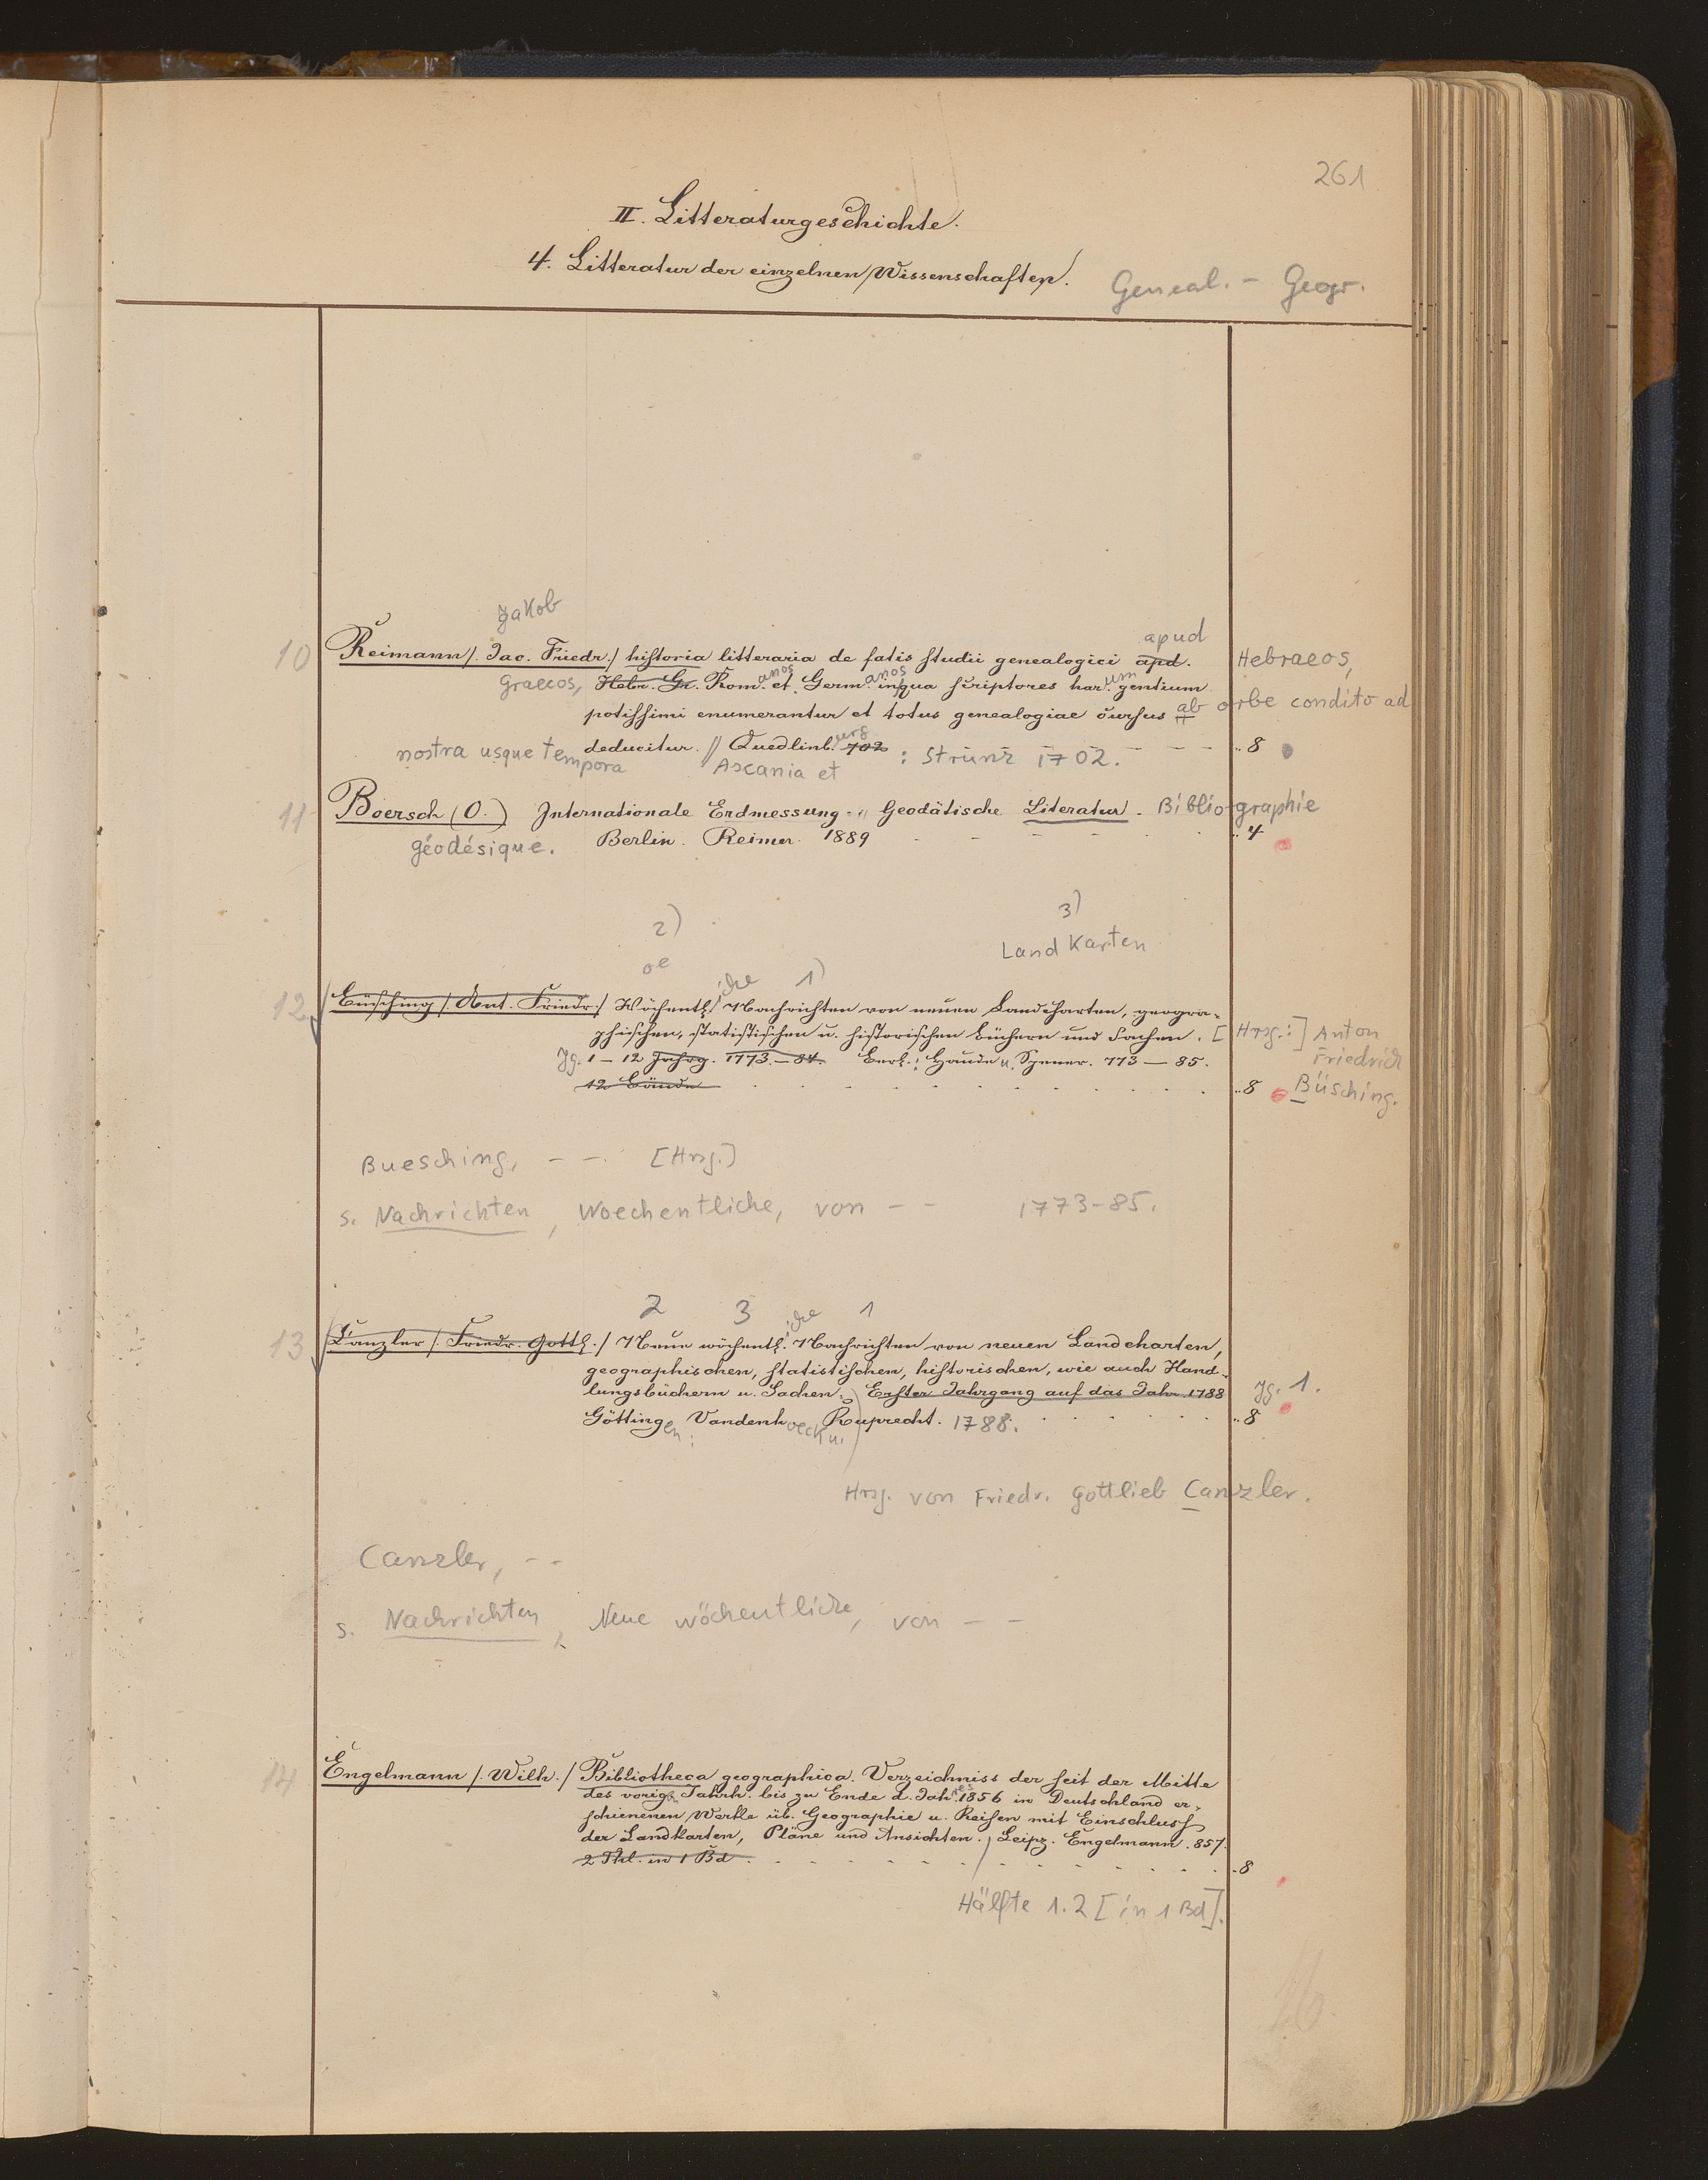 261
II. Litteraturgeschichte.
4. Litteratur der einzelnen Wissenschaften.
Geneal. - Geogr.
Jakob
apud
10 Reimann /. Jac. Friedr./ historia litteraria de fatis studii genealogici apd. Hebraeos,
Graecos, Hebr. Gr. Rom.anos et Germ.anos inqua scriptores har.um gentium
potissimi enumerantur et totus genealogiae cursus ab orbe condito ad
nostra usque tempora deducitur. // Quedlinb.urg 702 : Strunz 1702. - - - ..8
Ascania et
11 Boersch (O.) Internationale Erdmessung. Geodätische Literatur. Bibliographie
géodésique. Berlin. Reimer. 1889 - - - ..4
2) 3)
Land Karten
oe iche 1)
12 Büsching /. Ant. Friedr./ Wöchentl. Nachrichten von neuen Landcharten, geogra-
phischen, statistischen u. historischen Büchern und Sachen. [Hrsg.:] Anton
Friedrich
Jg. 1-12 Jahrg. 1773-84. Berl.: Haude u. Spener. 773-85.
12 Bände ..8 Büsching.
Buesching, - - . [Hrsg.]
s. Nachrichten, Woechentliche, von - - 1773-85.
2 3 iche 1
13 Canzler /. Friedr. Gottl./ Neue wöchentl. Nachrichten von neuen Landcharten,
geographischen, statistischen, historischen, wie auch Hand-
lungsbüchern u. Sachen. Erster Jahrgang auf das Jahr 1788 Jg. 1.
Göttingen: Vandenhoeck u. Ruprecht. 1788. ..8
Hrsg. von Friedr. Gottlieb Canzler.
Canzler, - -
s. Nachrichten, Neue wöchentliche, von - -
14 Engelmann /. Wilh./ Bibliotheca geographica. Verzeichniss der seit der Mitte
des vorign Jahrh. bis zu Ende d. Jahres 1856 in Deutschland er-
schienenen Werke üb. Geographie u. Reisen mit Einschluss
der Landkarten, Pläne und Ansichten. / Leipz. Engelmann. 857.
2 Thl. in 1 Bd. ..8
Hälfte 1.2 [in 1 Bd].